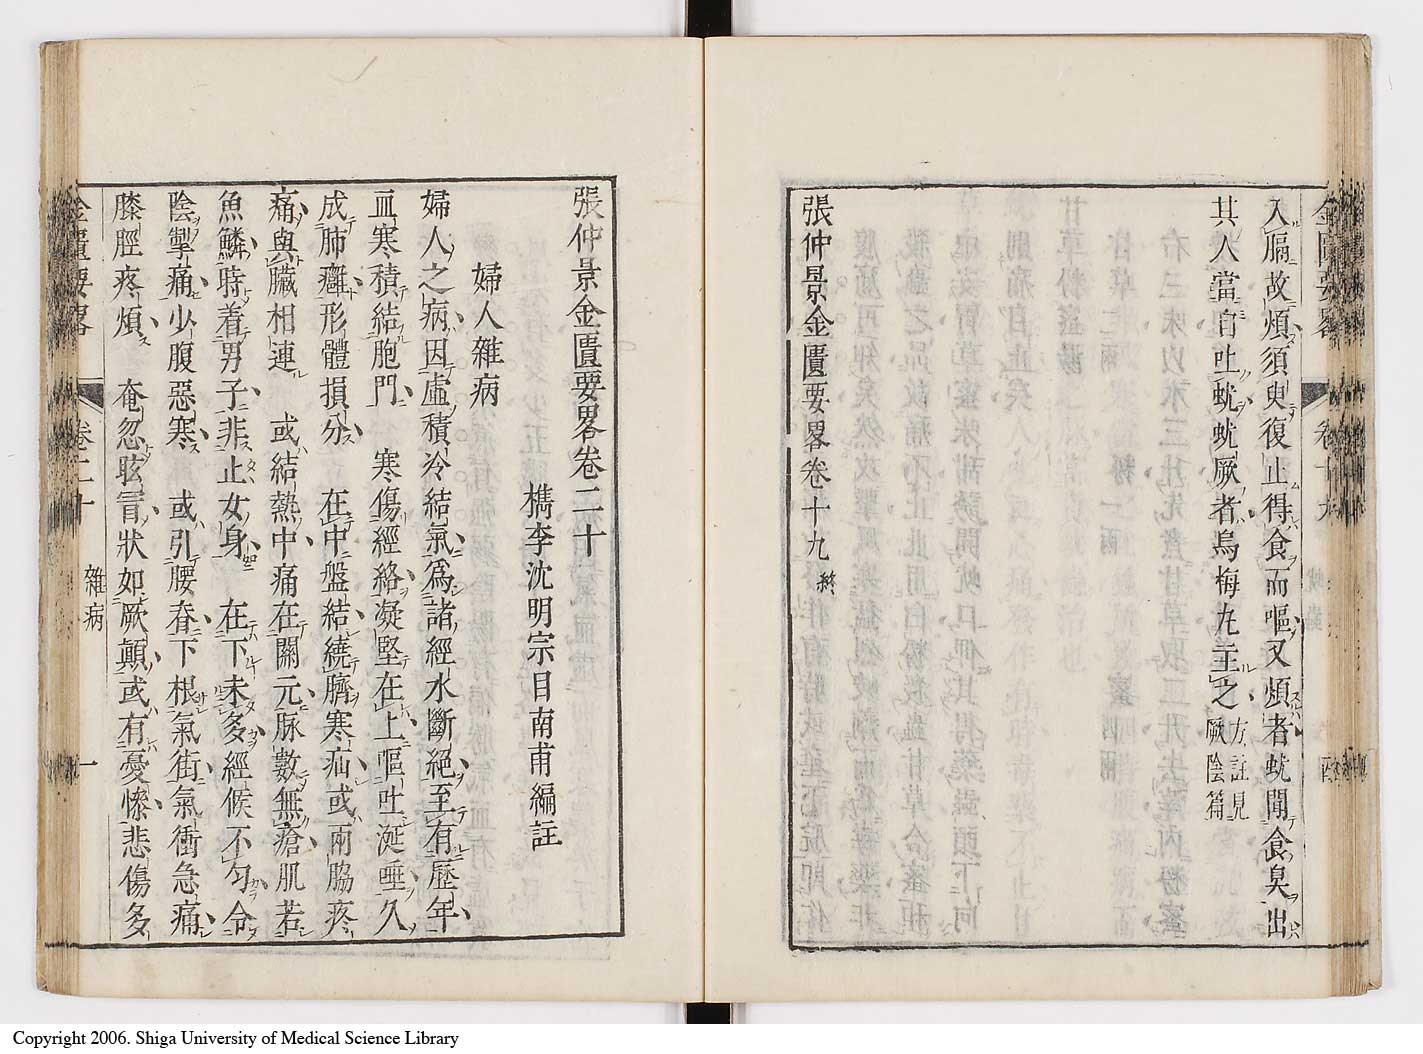 入膈故煩須臾復止得食而嘔又煩者蚘聞食臭出
其人當自吐蚘蚘厥者烏梅丸主之方註見厥陰篇
張仲景金匱要畧卷十九終
張仲景金匱要畧卷二十
檇李沈明宗目南甫編註
婦人雜病
婦人之病因虛積冷結氣爲諸經水斷絕至有歷年
血寒積結胞門 寒傷經絡凝堅在上嘔吐涎唾久
成肺癰形體損分 在中盤結繞臍寒疝或兩脇疼
痛與臟相連 或結熱中痛在關元脉數無瘡肌若
魚鱗時着男子非止女身 在下未多經候不勻令
陰掣痛少腹惡寒 或引腰脊下根氣街氣衝急痛
膝脛疼煩 奄忽眩冒狀如厥顛或有憂慘悲傷多
金匱要畧 卷二十 雜病 一
Copyright 2006. Shiga University of Medical Science Library